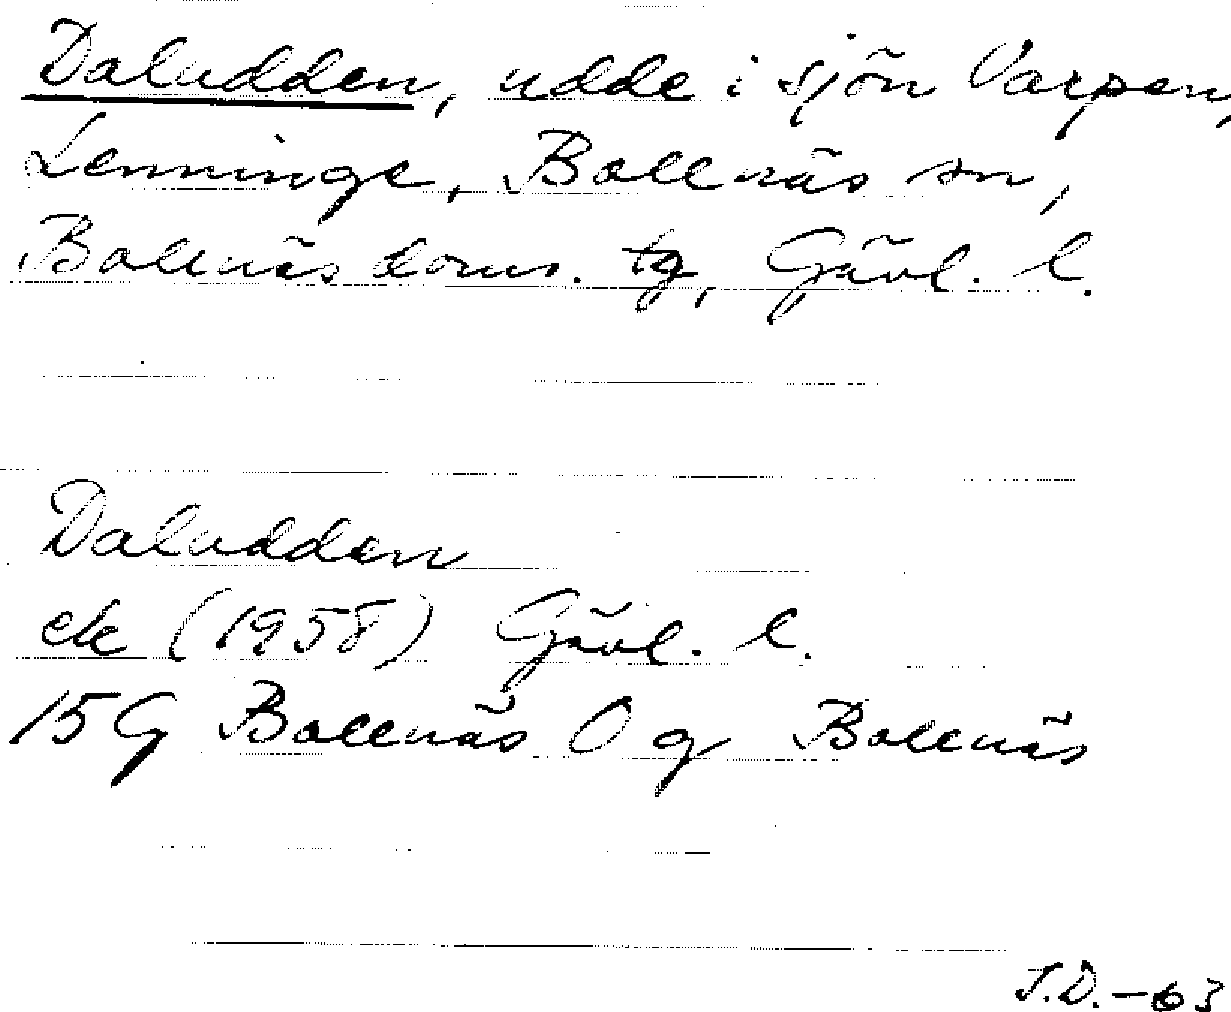 Daludden, udde i sjön Varpen,
Lenninge, Bollnäs sn,
Bollnäs doms. tg, Gävl. l.
Daludden
ek (1958) Gävl. l.
15G Bollnäs 0 g Bollnäs
J.D.-63